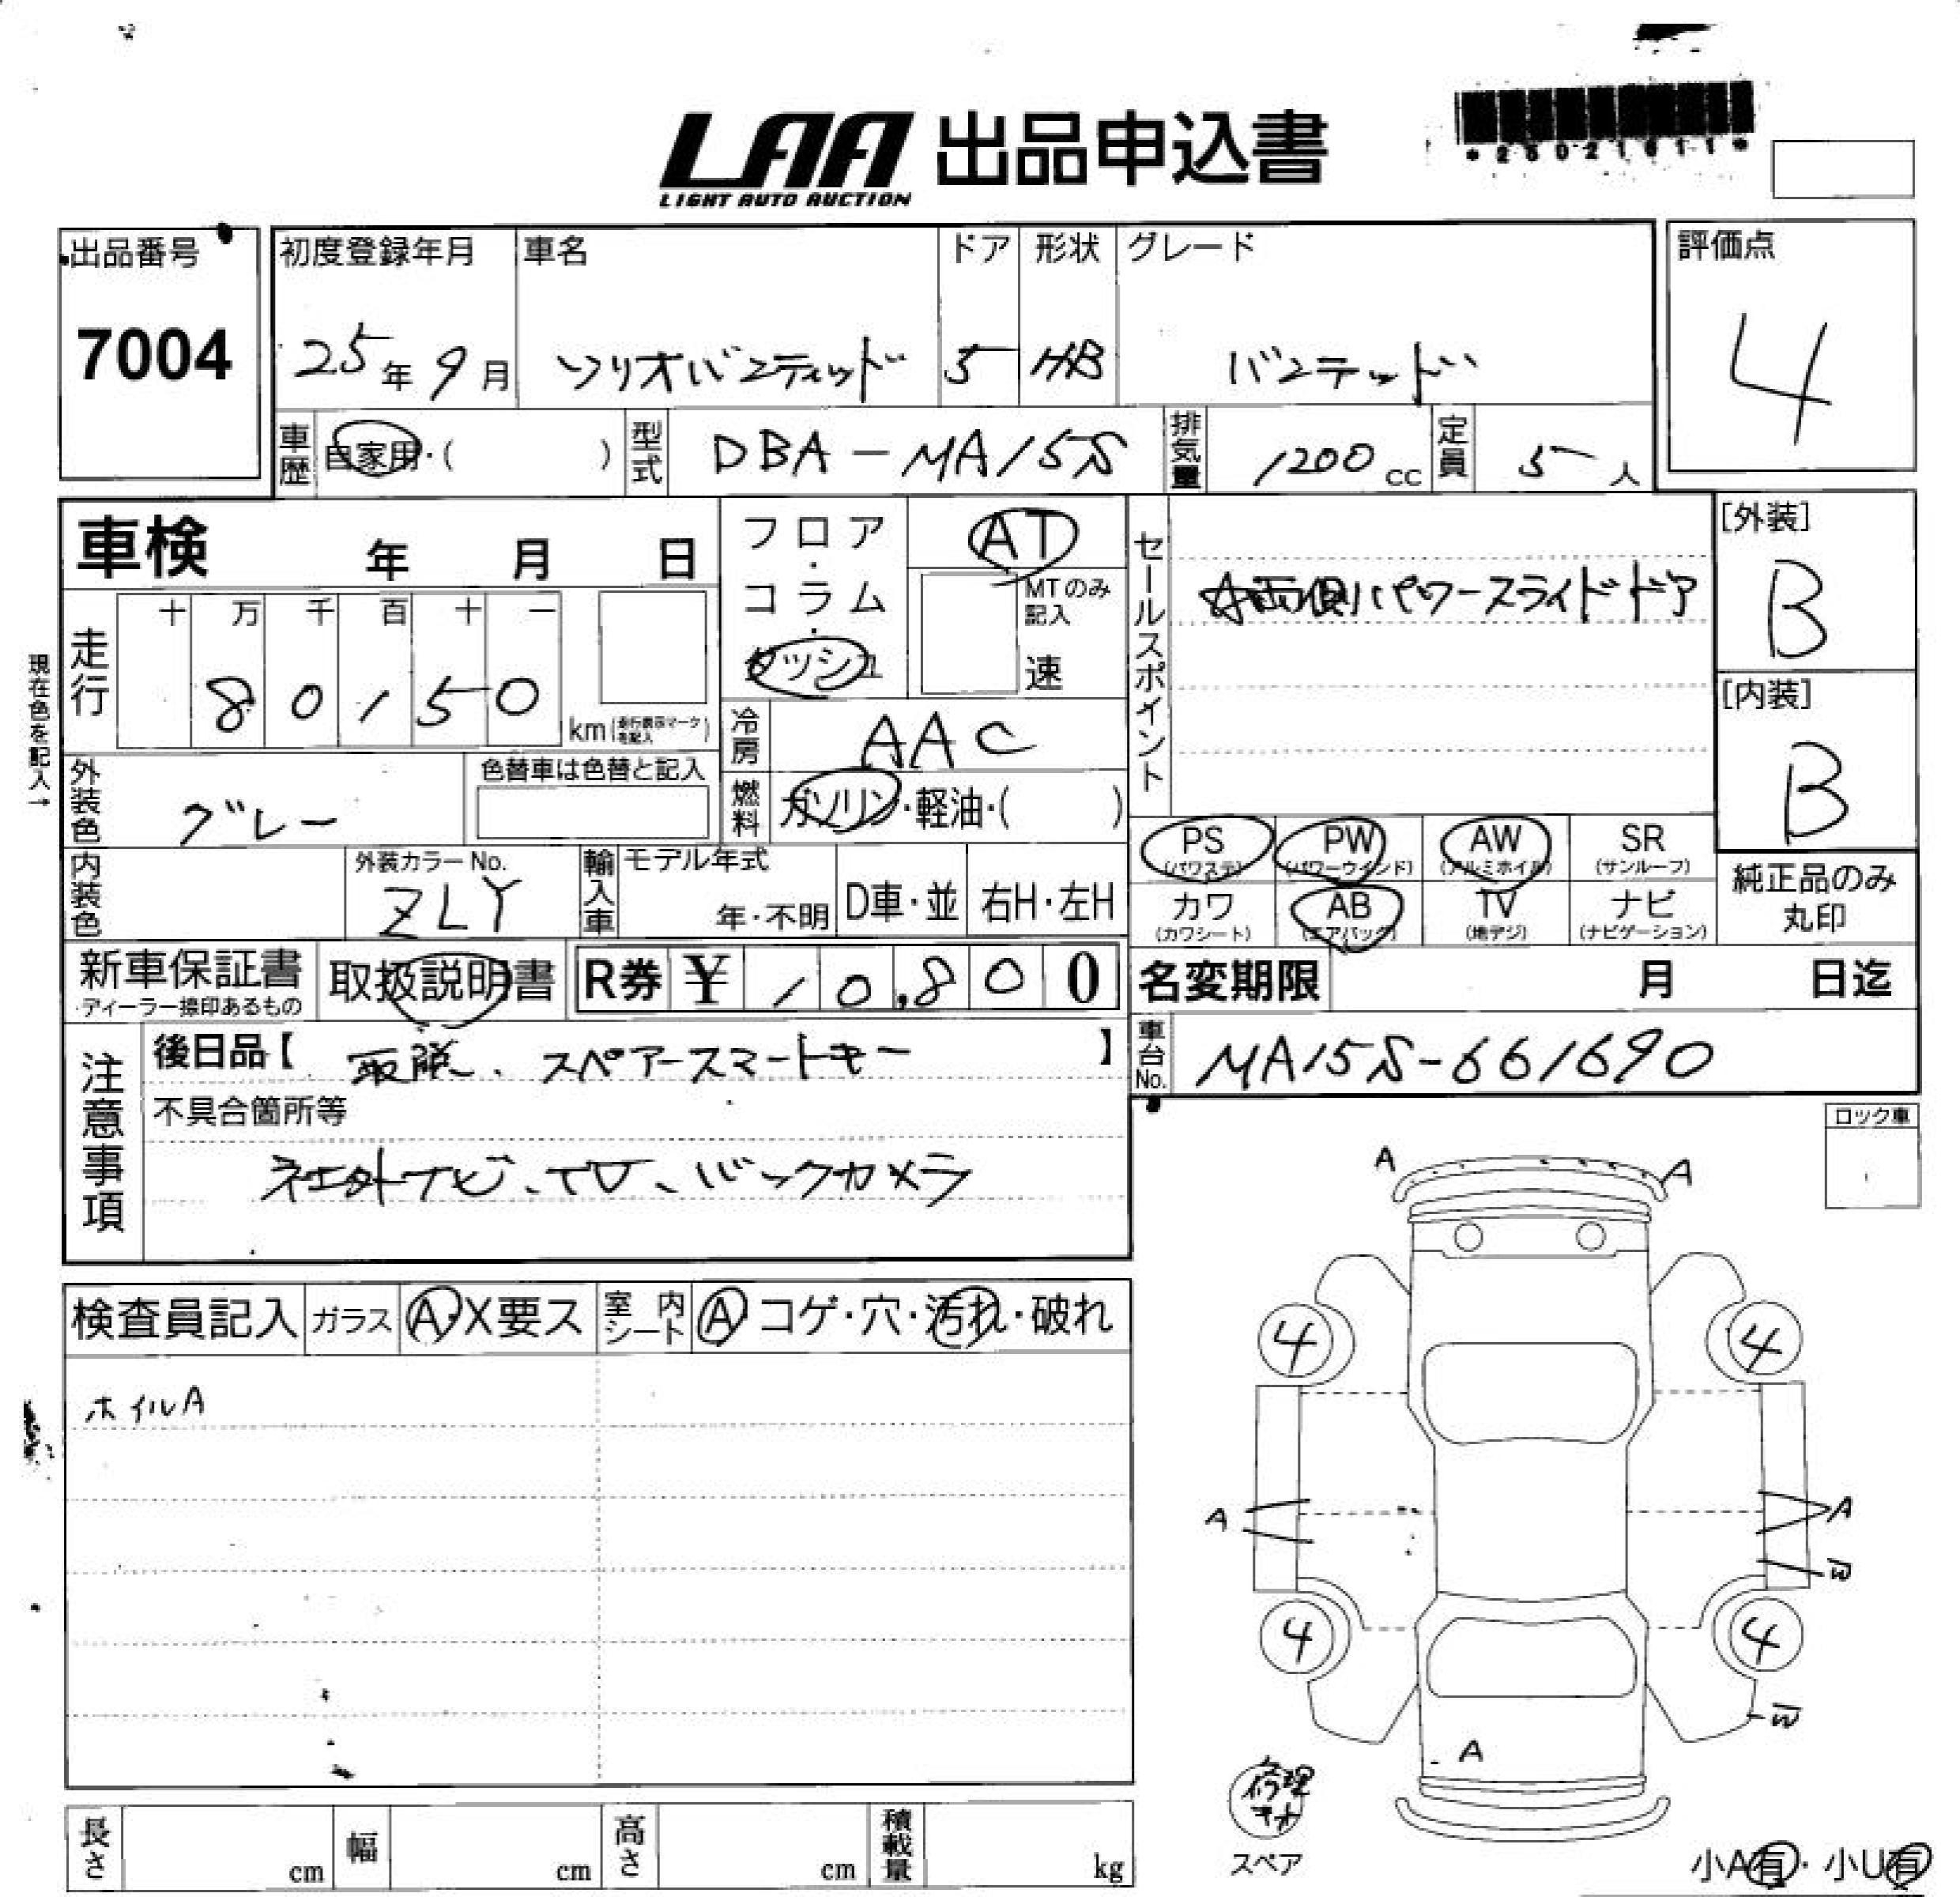 LAA 出品申込書
LIGHT AUTO AUCTION
出品番号
7004
初度登録年月
25年9月
車名
ソリオバンディッド
ドア
5
形状
HB
グレード
バンデッド
評価点
4
車歴 自家用・( )
型式 DBA-MA15S
排気量 1200cc
定員 5人
車検 年 月 日
フロア・コラム・ダッシュ
AT
MTのみ記入
速
セールスポイント
☆両側パワースライドドア
[外装]
B
[内装]
B
現在色を記入→
走行
十 万 千 百 十 一
80150
km(走行表示マークを記入)
冷房 AAC
外装色 グレー
色替車は色替と記入
燃料 ガソリン・軽油・( )
PS(パワステ) PW(パワーウインド) AW(アルミホイル) SR(サンルーフ)
カワ(カワシート) AB(エアバック) TV(地デジ) ナビ(ナビゲーション)
純正品のみ丸印
内装色
外装カラーNo.
ZLY
輸入車 モデル年式
年・不明
D車・並
右H・左H
新車保証書
・ディーラー捺印あるもの
取扱説明書
R券 ¥10,800
名変期限 月 日迄
車台No. MA15S-661690
注意事項
後日品【 取説、スペアースマートキー 】
不具合箇所等
社外ナビ、TV、バックカメラ
ロック車
検査員記入
ガラス A・X要ス
室内シート A コゲ・穴・汚れ・破れ
ホイルA
A A
4 4
A A
W
4 4
W
A
修理キット
スペア
小A有・小U有
長さ cm
幅 cm
高さ cm
積載量 kg